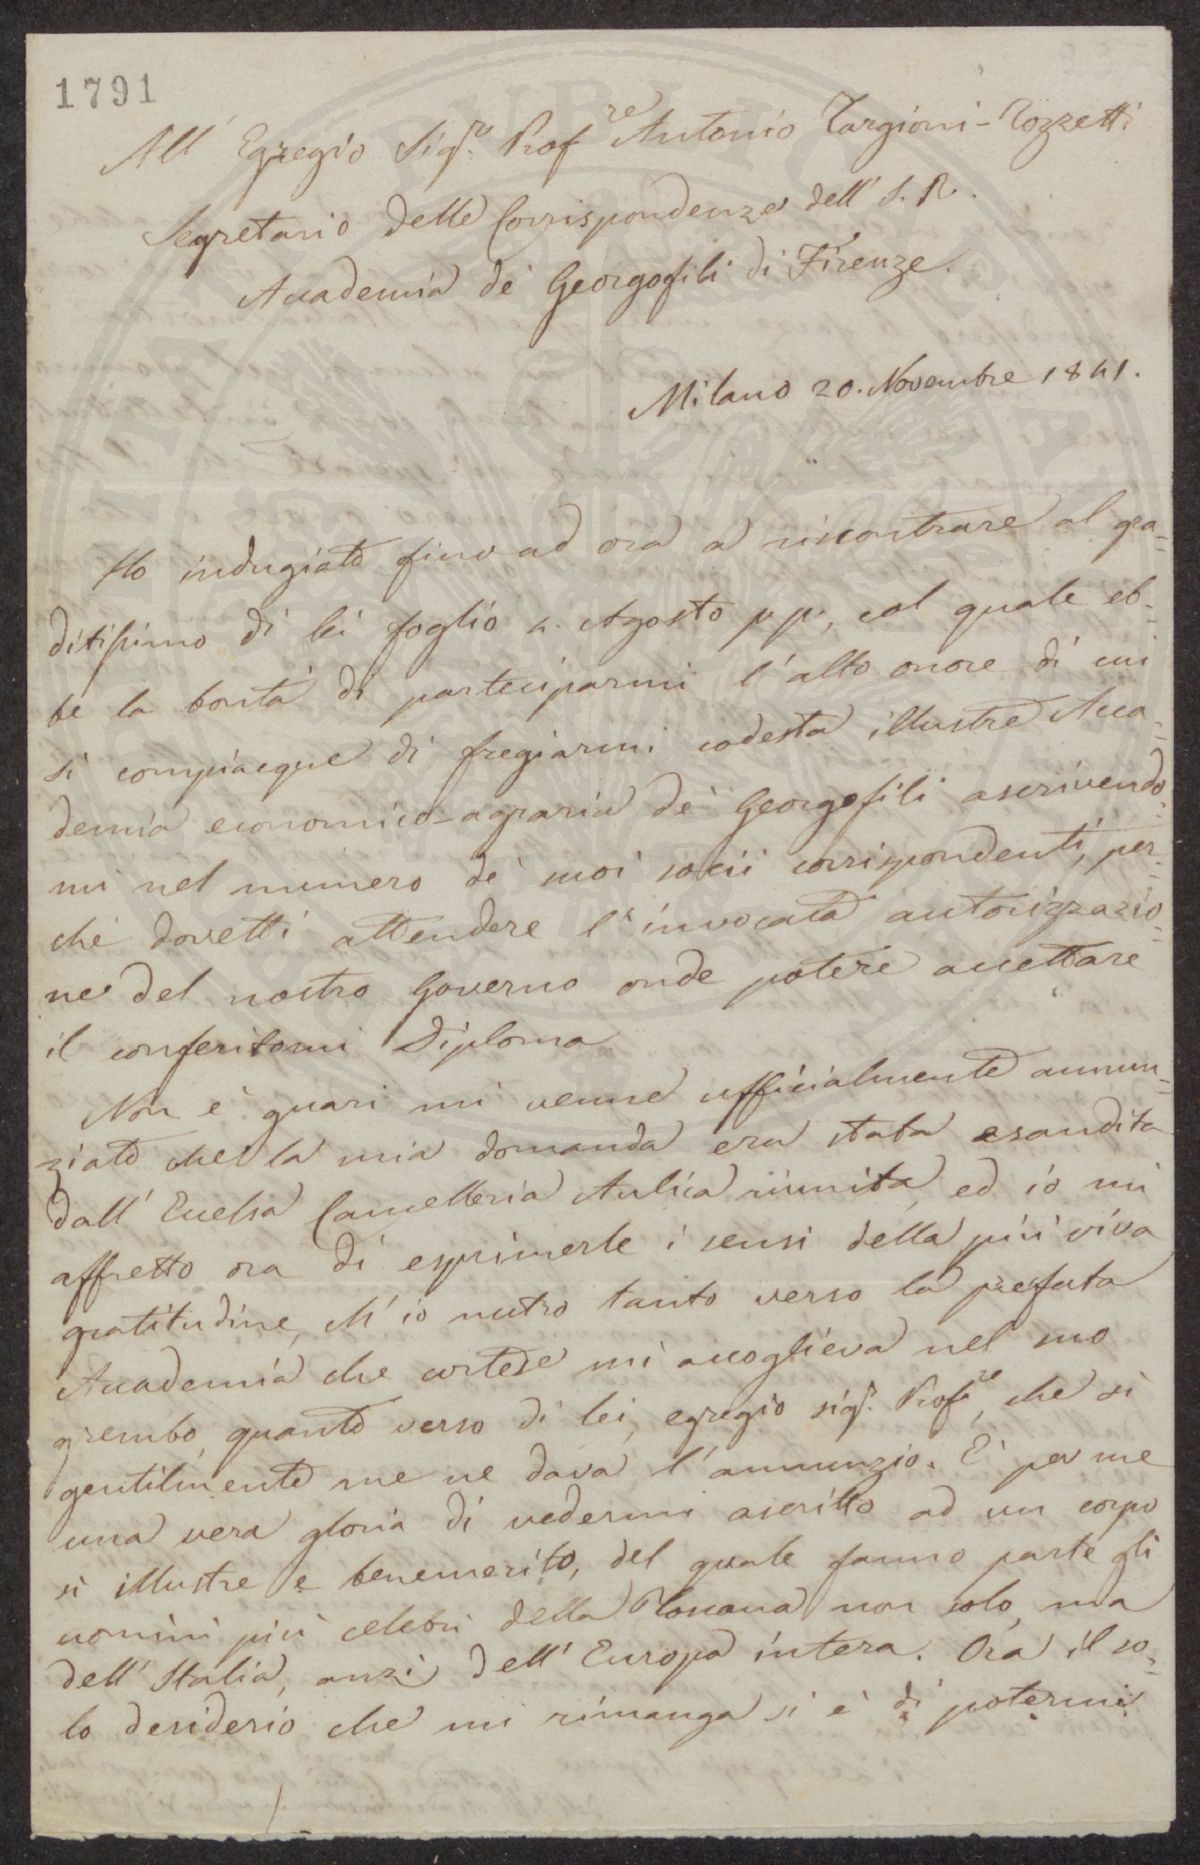 1791
All' Egregio Sigr. Profre Antonio Targioni-Tozzetti
Segretario delle Corrispondenze dell' I. R.
Accademia de' Georgofili di Firenze.
Milano 20. Novembre 1841.
Ho indugiato fino ad ora a riscontrare al gra-
ditissimo di lei foglio 2. Agosto p.p., col quale eb-
be la bontà di parteciparmi l'alto onore di cui
si compiacque di fregiarmi codesta illustre Acca-
demia economico-agraria de' Georgofili ascrivendo
mi nel numero de' suoi socii corrispondenti, per-
chè dovetti attendere l'invocata autorizzazio-
ne del nostro Governo onde potere accettare
il conferitomi Diploma
Non è guari mi venne ufficialmente annun-
ziato che la mia domanda era stata esaudita
dall' Eccelsa Cancelleria Aulica riunita, ed io mi
affretto ora di esprimerle i sensi della più viva
gratitudine, ch' io nutro tanto verso la prefata
Accademia che cortese mi accoglieva nel suo
grembo, quanto verso di lei, egregio sigr. Profre, che sì
gentilmente me ne dava l'annunzio. E' per me
una vera gloria di vedermi ascritto ad un corpo
sì illustre e benemerito, del quale fanno parte gli
uomini più celebri della Toscana non solo, ma
dell' Italia, anzi dell' Europa intera. Ora il so-
lo desiderio che mi rimanga si è di potermi